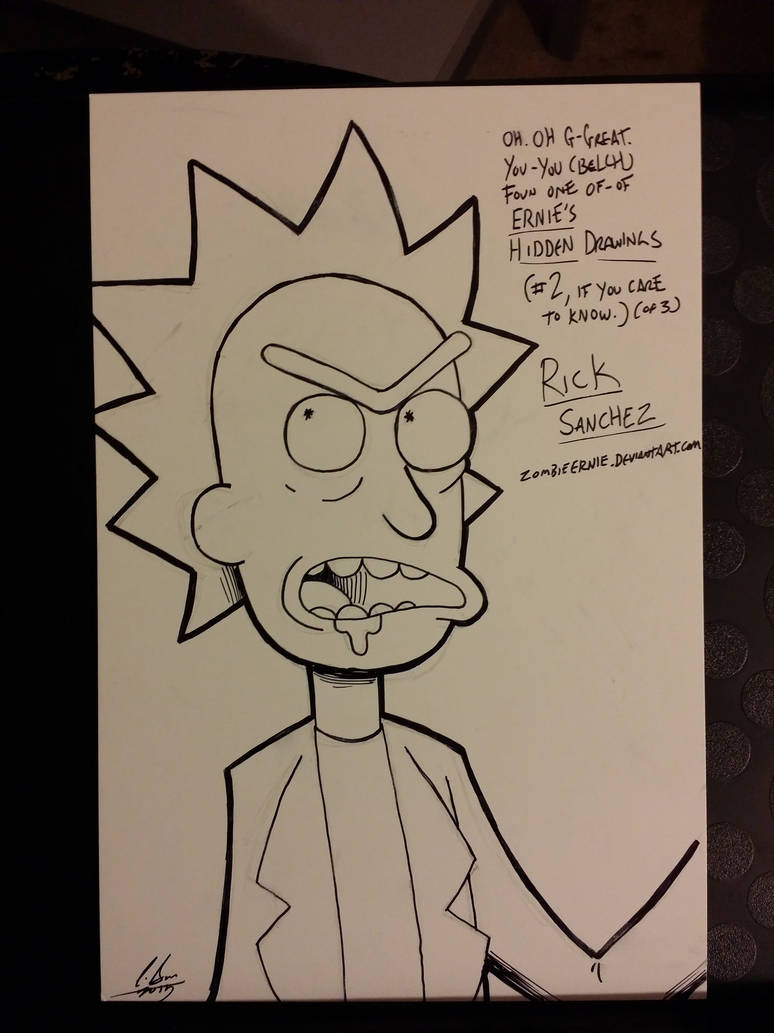 OH. OH G-GREAT.
YOU-YOU (BELCH)
FOUN ONE OF-OF
ERNIE'S
HIDDEN DRAWINGS
(#2, IF YOU CARE
TO KNOW.) (OF 3)
RICK
SANCHEZ
ZOMBIEERNIE.DEVIANTART.COM